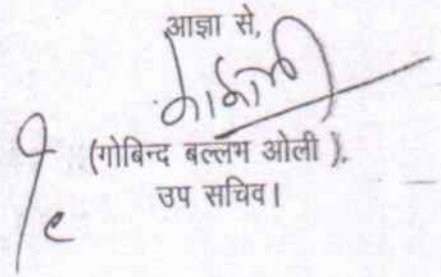 आज्ञा से,
(गोबिन्द बल्लभ ओली ),
उप सचिव।